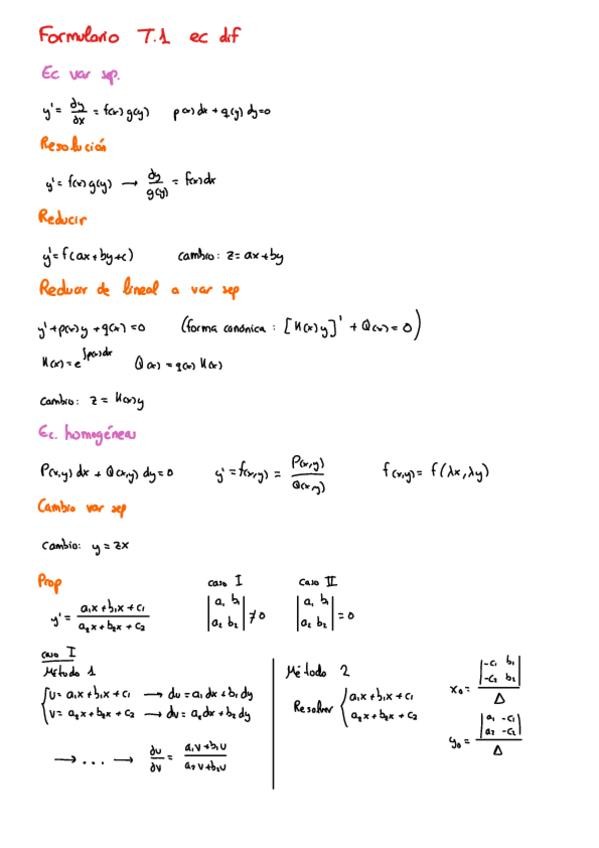 Formulario T.1 ec dif
Ec var sep.
y' = ∂y/∂x = f(x) g(y)    p(x) dx + q(y) dy = 0
Resolución
y' = f(x) g(y) → dy/g(y) = f(x) dx
Reducir
y' = f(ax+by+c)    cambio: z = ax+by
Reducir de lineal a var sep
y' + p(x) y + q(x) = 0    (forma canónica : [M(x) y]' + Q(x) = 0)
M(x) = e^∫p(x)dx    Q(x) = q(x) M(x)
cambio: z = M(x) y
Ec. homogéneas
P(x,y) dx + Q(x,y) dy = 0    y' = f(x,y) = P(x,y)/Q(x,y)    f(x,y) = f(λx, λy)
Cambio var sep
cambio: y = zx
Prop    caso I    caso II
y' = (a₁x + b₁x + c₁)/(a₂x + b₂x + c₂)    |a₁ b₁; a₂ b₂| ≠ 0    |a₁ b₁; a₂ b₂| = 0
caso I
Método 1
{U = a₁x + b₁x + c₁ → du = a₁dx + b₁dy
{V = a₂x + b₂x + c₂ → dv = a₂dx + b₂dy
→ ... → ∂u/∂v = (a₁v + b₁u)/(a₂v + b₂u)
Método 2
Resolver {a₁x + b₁x + c₁
{a₂x + b₂x + c₂
x₀ = |-c₁ b₁; -c₂ b₂|/Δ
y₀ = |a₁ -c₁; a₂ -c₂|/Δ